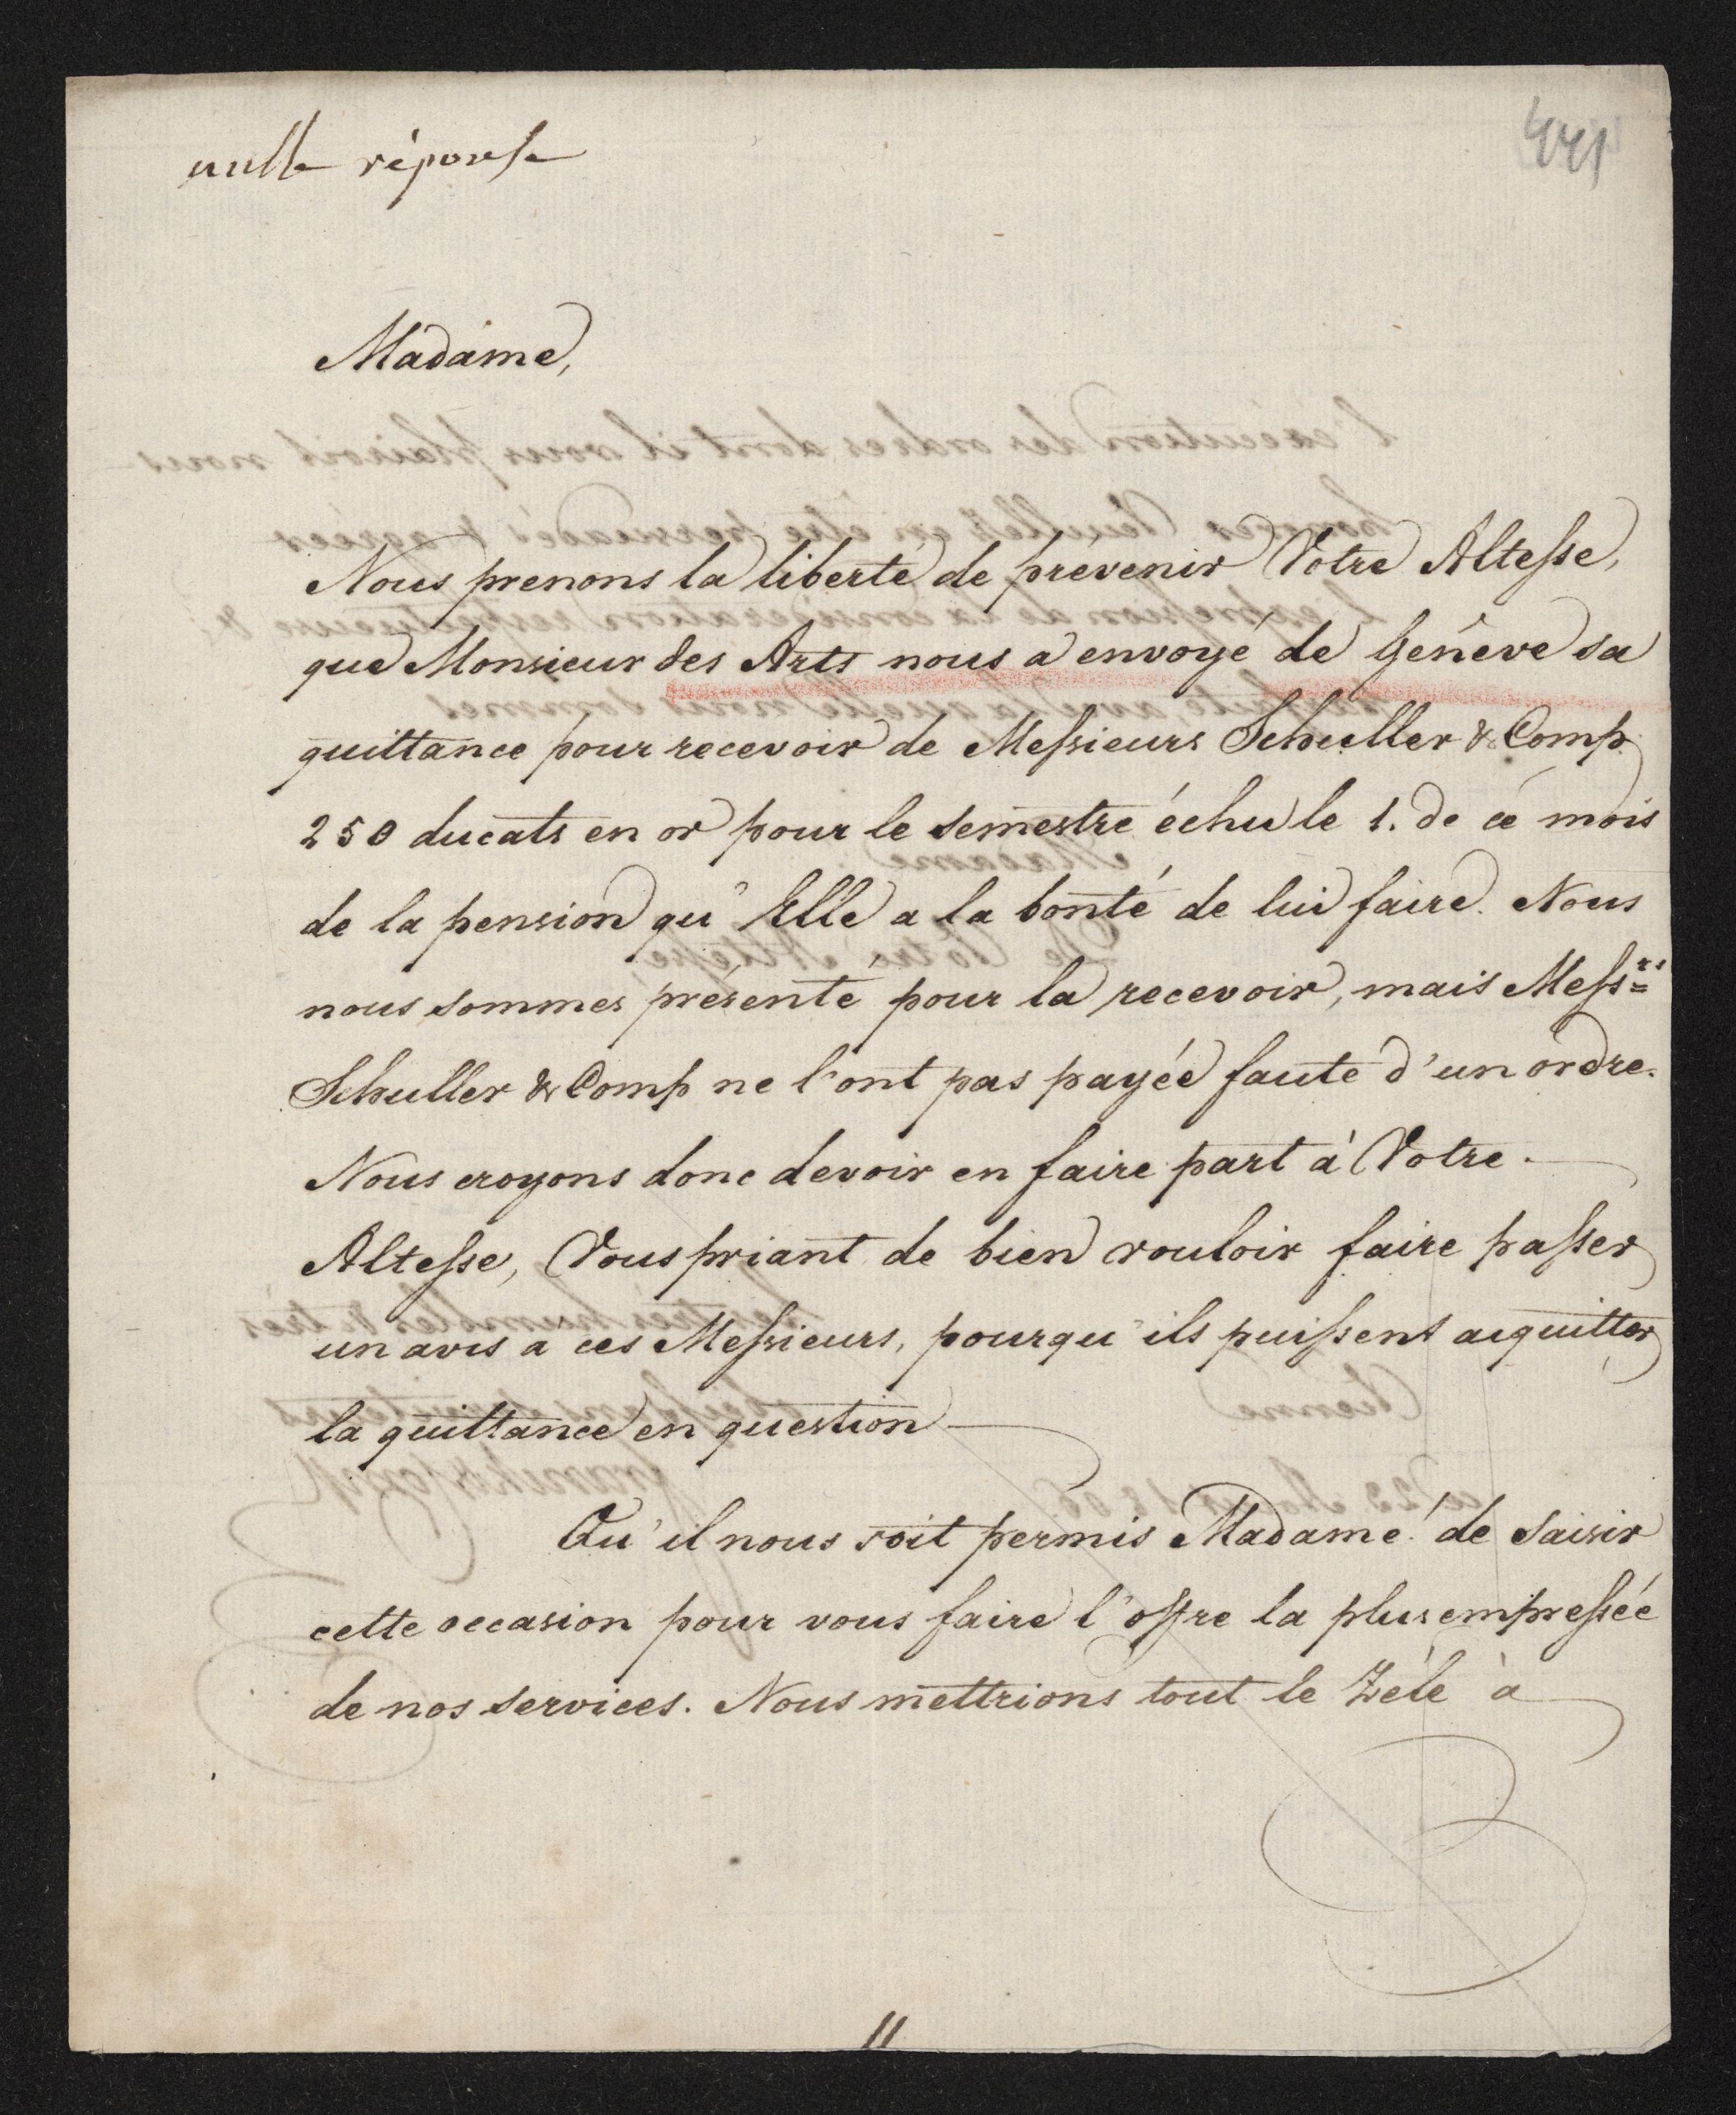 nulle réponse
441
Madame,
Nous prenons la liberté de prévenir Votre Altesse,
que Monsieur des Arts nous a envoyé de Genève sa
quittance pour recevoir de Messieurs Schuller & Comp
250 ducats en or pour le semestre échu le 1. de ce mois
de la pension qu'Elle a la bonté de lui faire. Nous
nous sommes présenté pour la recevoir, mais Mess.rs
Schuller & Comp ne l'ont pas payée faute d'un ordre.
Nous croyons donc devoir en faire part à Votre
Altesse, Vous priant de bien vouloir faire passer
un avis a ces Messieurs, pourqu'ils puissent acquitter
la quittance en question
Qu'il nous soit permis Madame! de saisir
cette occasion pour vous faire l'offre la plus empressée
de nos services. Nous mettrions tout le Zéle à